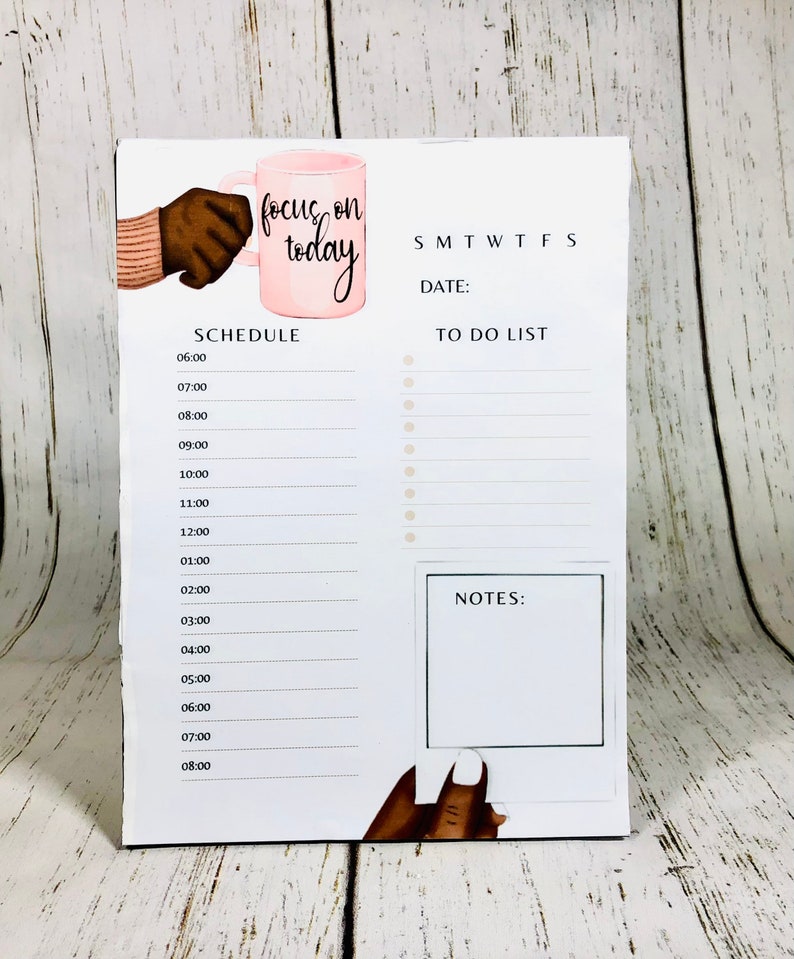 focus on
today
S M T W T F S
DATE:
SCHEDULE
06:00
07:00
08:00
09:00
10:00
11:00
12:00
01:00
02:00
03:00
04:00
05:00
06:00
07:00
08:00
TO DO LIST
NOTES: